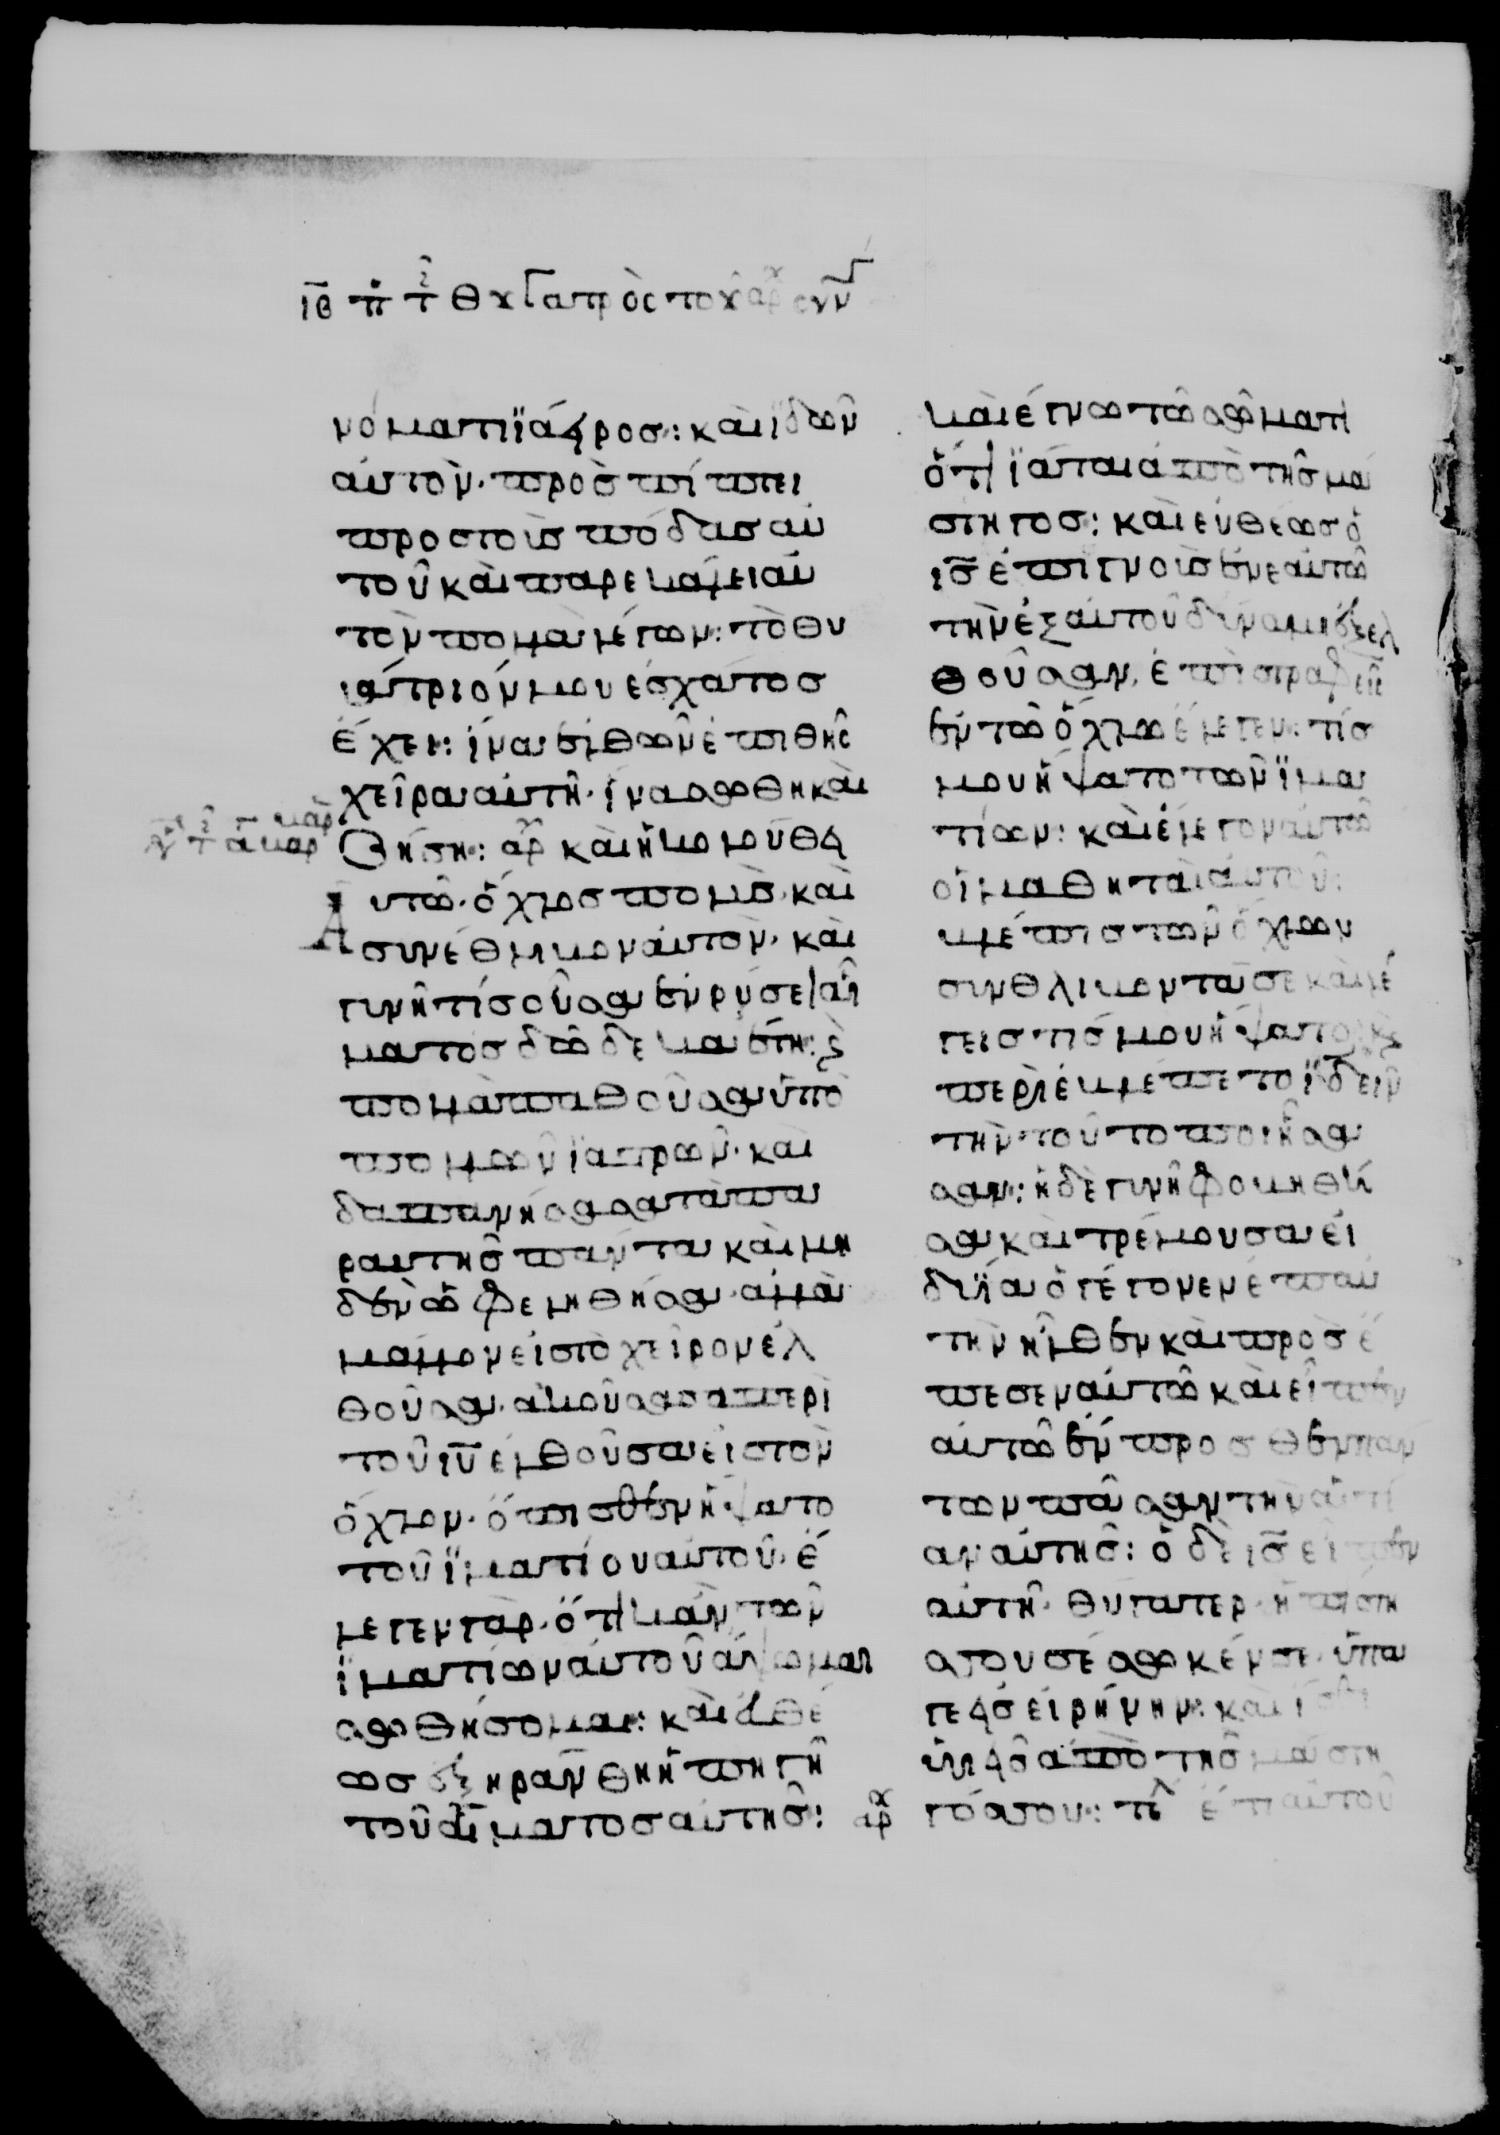 ιβ π τ θυγατρὸς τοῦ ἀρχισυν
νόματι ϊάηρος: καὶ ϊδὼν
αὐτὸν· προσπίπτει
προς τοὺς πόδας αὐ
τοῦ καὶ παρεκάλει αὐ
τὸν πολλὰ λέγων: τὸ θυ
γάτριόν μου ἐσχάτως
ἔχει: ἵνα ἐλθὼν ἐπιθῆς
χεῖρα αὐτῆ· ἵνα σωθῆ καὶ
ζήση: ἀρχ καὶ ἠκολούθει
Αὐτῶ· ὄχλος πολὺς· καὶ
συνέθλιβον αὐτὸν· καὶ
γυνή τις οὖσα ἐν ρύσει αἵ
ματος δώδεκα ἔτη: καὶ
πολλὰ παθοῦσα ὑπὸ
πολλῶν ϊατρῶν· καὶ
δαπανήσασα τὰ πα
ρ αυτῆς πάντα καὶ μη
δὲν ὠφεληθήσα· ἀλλὰ
μᾶλλον εἰς τὸ χεῖρον ἐλ
θοῦσα· ἀκούσασα περὶ
τοῦ ιῦ ἐλθοῦσα εἰς τὸν
ὄχλον· ὄπισθεν ἥψατο
τοῦ ϊματίου αὐτοῦ· ἔ
λεγεν γὰρ· ὅτι κἂν τῶν
ϊματίων αὐτοῦ ἅψωμαι
σωθήσομαι: καὶ εὐθέ
ως ἐξηράνθη ἡ πηγὴ
τοῦ αἵματος αὐτῆς: ἀρχ
καὶ ἔγνω τῶ σώματι
ὅτι ϊάται ἀπὸ τῆς μά
στηγος: καὶ εὐθέως ὁ
ις ἐπιγνοὺς ἐν ἑαυτῶ
τὴν ἐξ αυτοῦ δύναμιν ἐξελ
θοῦσαν, ἐπιστραφεὶς
ἐν τῶ ὄχλω ἔλεγεν: τίς
μου ἥψατο τῶν ϊμα
τίων: καὶ ἔλεγον αὐτῶ
οἱ μαθηταὶ αὐτοῦ:
βλέπις τῶν ὄχλων
συνθλιβοντα σε καὶ λέ
γεις τίς μου ἥψατο: καὶ
περιεβλέπετο ϊδεῖν
τὴν τοῦτο ποιῆσα
σαν: ἡ δὲ γυνὴ φοβηθεῖ
σα καὶ τρέμουσα εἰ
δυῖα ὃ γέγονεν ἐπ αυ
τὴν ἦλθεν καὶ προσέ
πεσεν αὐτῶ καὶ εἶπεν
αὐτῶ ἔνπροσθεν πάν
των πᾶσαν τὴν αἰτί
αν αὐτῆς: ὁ δὲ ις εἶπεν
αὐτῆ· θύγατερ· ἡ πίστη
ς σου σέσωκέν σε· ὕπα
γε εἰς εἰρήνην: καὶ ἴσθι
ὑγιὴς ἀπὸ τῆς μάστη
γός σου: τλ ἔτι αὐτοῦ